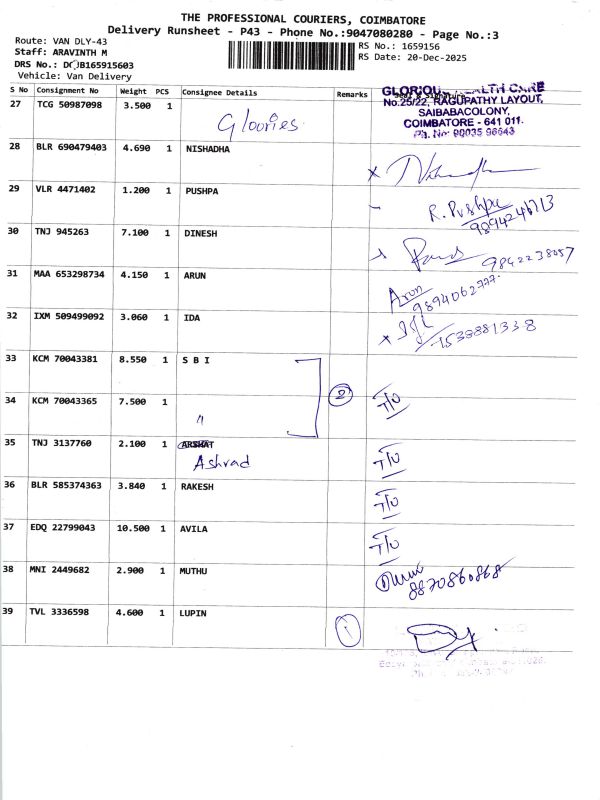 THE PROFESSIONAL COURIERS, COIMBATORE
Delivery Runsheet - P43 - Phone No.:9047080280 - Page No.:3
Route: VAN DLY-43
RS No.: 1659156
Staff: ARAVINTH M
RS Date: 20-Dec-2025
DRS No.:
Vehicle: Van Delivery
S No Consignment No Weight PCS Consignee Details Remarks Seal & Signature
27 TCG 50987098 3.500 1 Gloories
HEALTH CARE
No.25/22, RAGUPATHY LAYOUT,
SAIBABACOLONY,
COIMBATORE - 641 011.
28 BLR 690479403 4.690 1 NISHADHA
29 VLR 4471402 1.200 1 PUSHPA R. Pushpa
30 TNJ 945263 7.100 1 DINESH 9842238057
31 MAA 653298734 4.150 1 ARUN Arun
9894062777
32 IXM 509499092 3.060 1 IDA
33 KCM 70043381 8.550 1 S B I
2
34 KCM 70043365 7.500 1 " T/O
35 TNJ 3137760 2.100 1
Ashrad T/O
36 BLR 585374363 3.840 1 RAKESH T/O
37 EDQ 22799043 10.500 1 AVILA T/O
38 MNI 2449682 2.900 1 MUTHU
8870860868
39 TVL 3336598 4.600 1 LUPIN 1